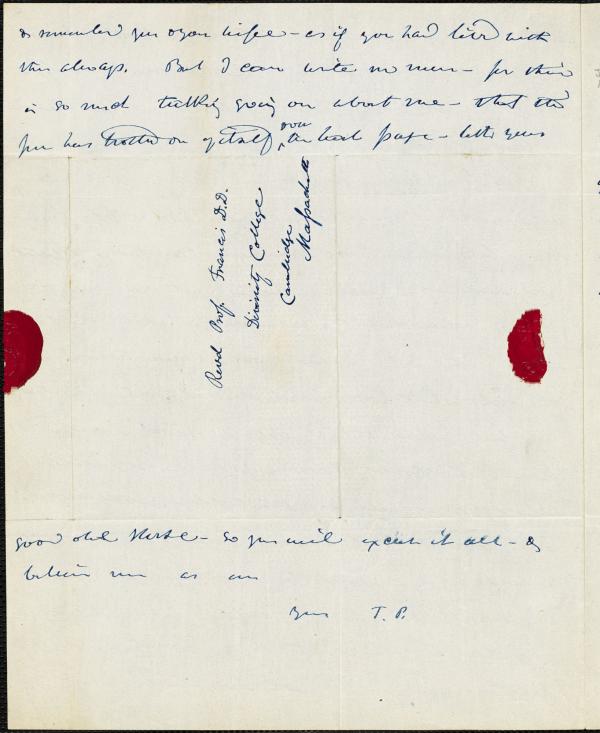 & remembered you & your wife – as if you had lived with
them always. But I can write no more – for there
is so much talking going on about me – that the
pen has trotted on of itself, over the last page – like your
Revd Prof. Francis D.D.
Divinity College
Cambridge
Massachetts
good old Horse – so you will excuse it all – &
believe me as ever
yours T. P.